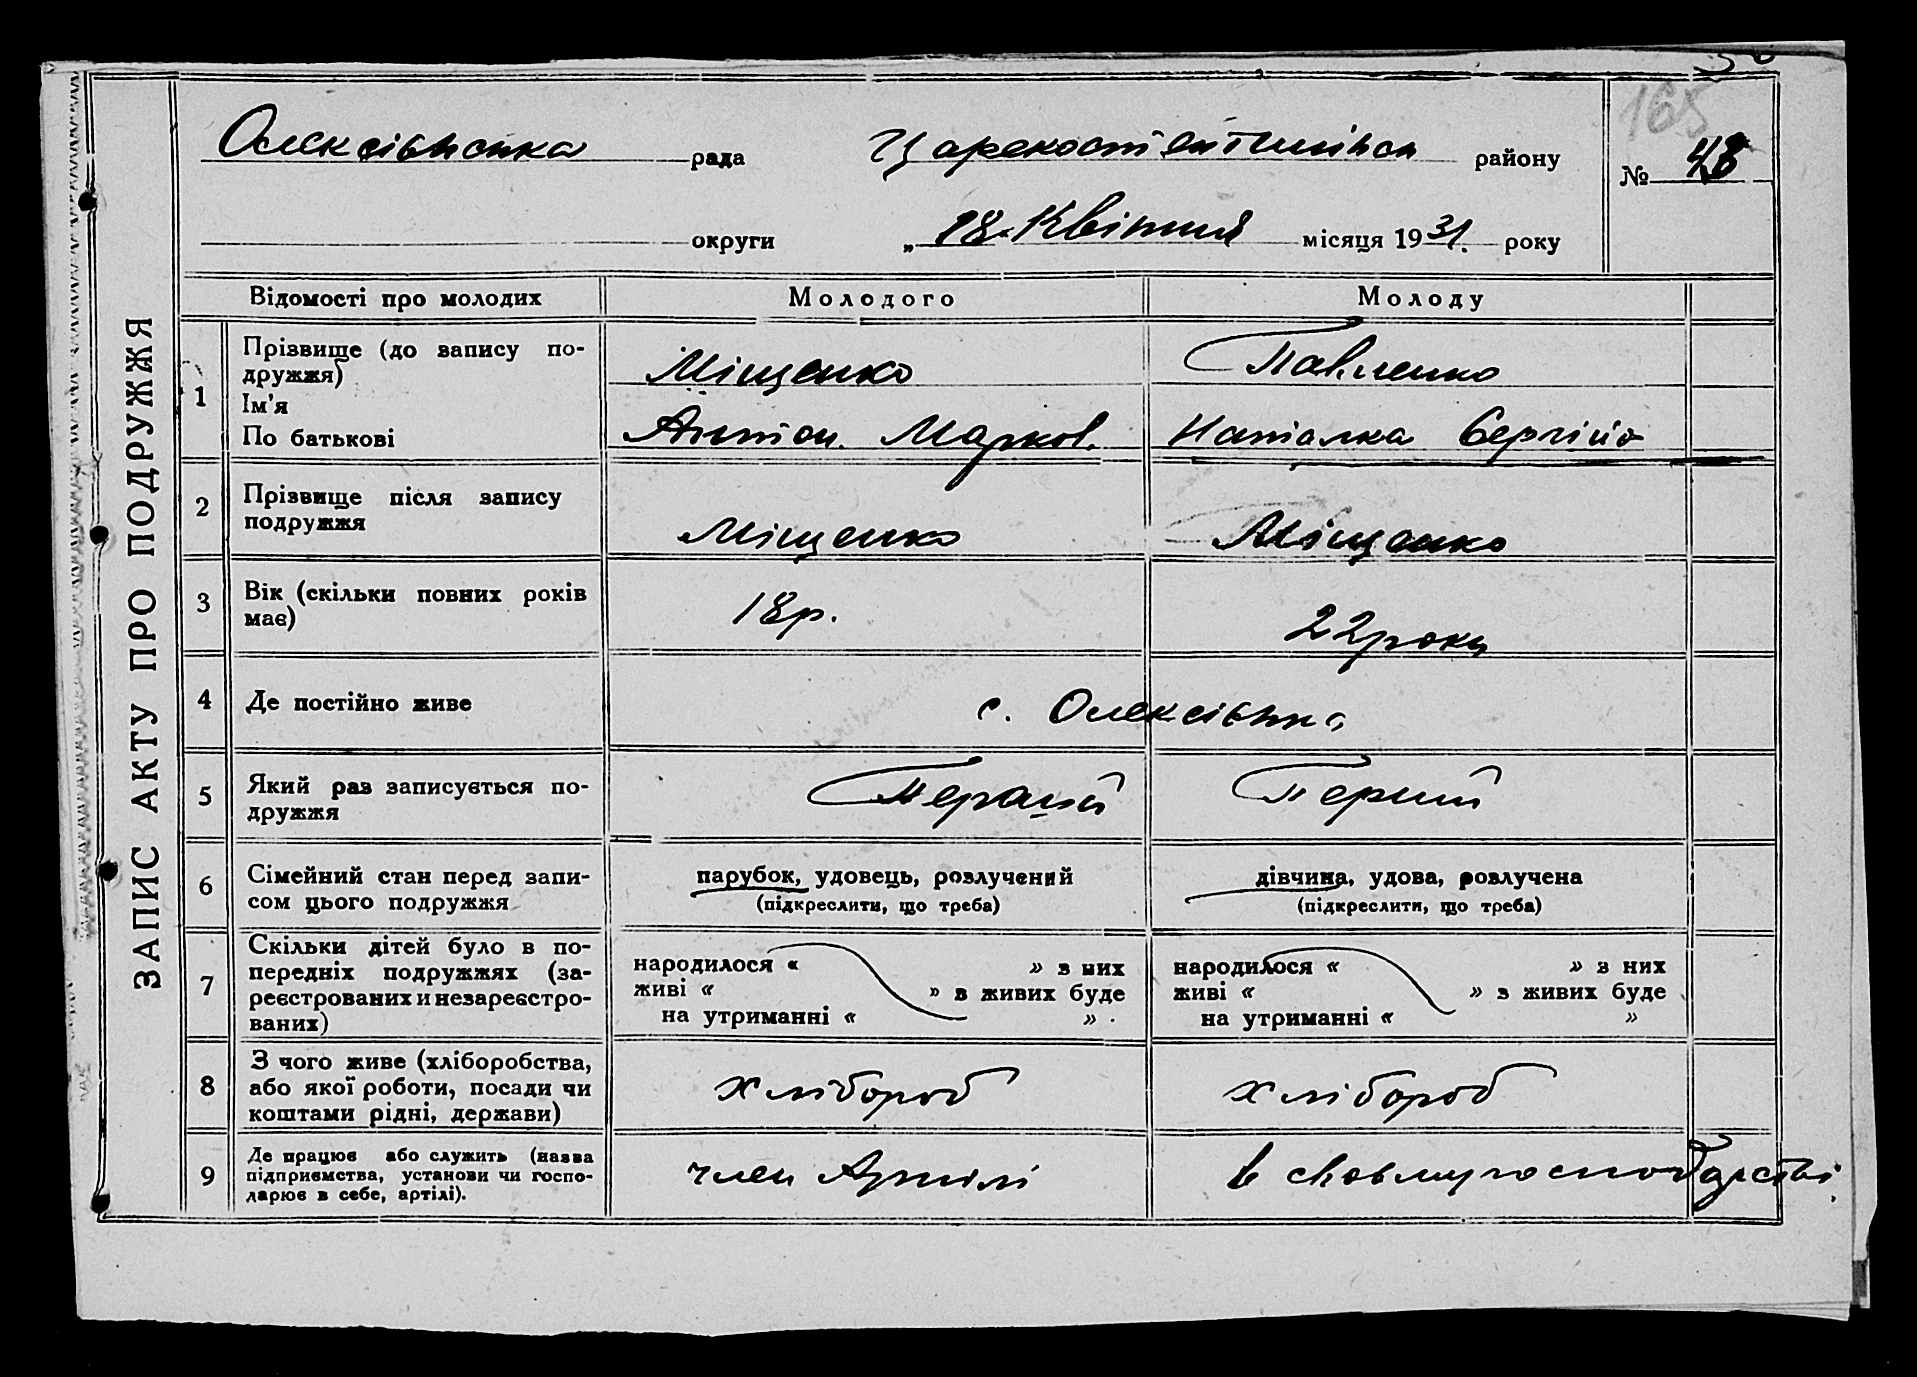 165
Олексіївська рада Царекостянтинівськ району № 48
округи „18" Квітня місяця 1931. року
ЗАПИС АКТУ ПРО ПОДРУЖЖЯ
Відомості про молодих Молодого Молоду
1 Прізвище (до запису по-
дружжя) Міщенко Павленко
Ім'я
По батькові Антон Марков. Наталка Сергіїв
2 Прізвище після запису
подружжя Міщенко Міщенко
3 Вік (скільки повних років
має) 18р. 22 роки
4 Де постійно живе с. Олексіївка
5 Який раз записується по-
дружжя Перший Перший
6 Сімейний стан перед запи-
сом цього подружжя
парубок, удовець, розлучений дівчина, удова, розлучена
(підкреслити, що треба) (підкреслити, що треба)
7 Скільки дітей було в по-
передніх подружжях (за-
реєстрованих и незареєстро-
ваних)
народилося « » з них
живі « » в живих буде
на утриманні « » .
народилося « » з них
живі « » з живих буде
на утриманні « »
8 З чого живе (хліборобства,
або якої роботи, посади чи
коштами рідні, держави) хлібороб хлібороб
9 Де працює або служить (назва
підприємства, установи чи госпо-
дарює в себе, артілі). член Артілі в своєму господарстві